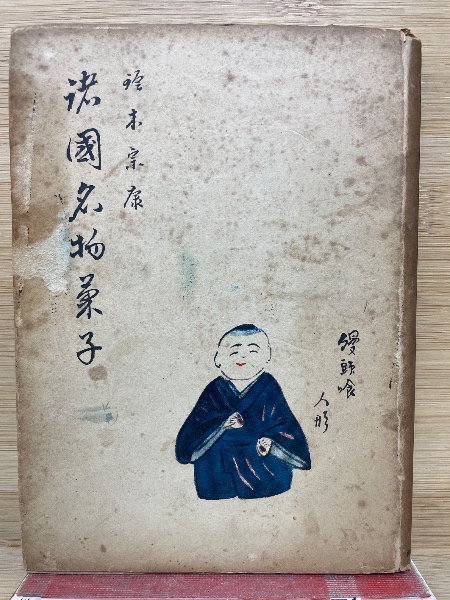 鈴木宗康
諸國名物菓子
饅頭喰
人形